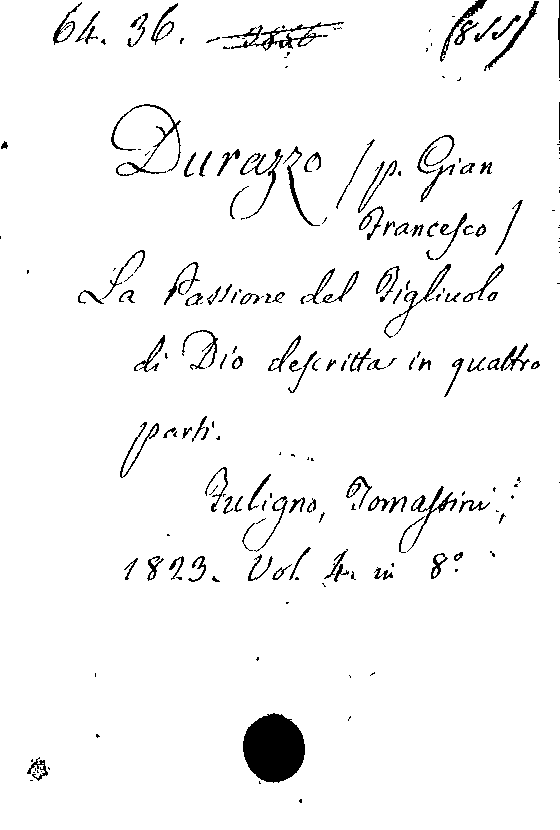 64. 36. (855)
Durazzo / p. Gian
Francesco /
La Passione del Figliuolo
di Dio descritta in quattro
parti.
Fuligno, Tomassini,
1823. Vol. 4. in 8°